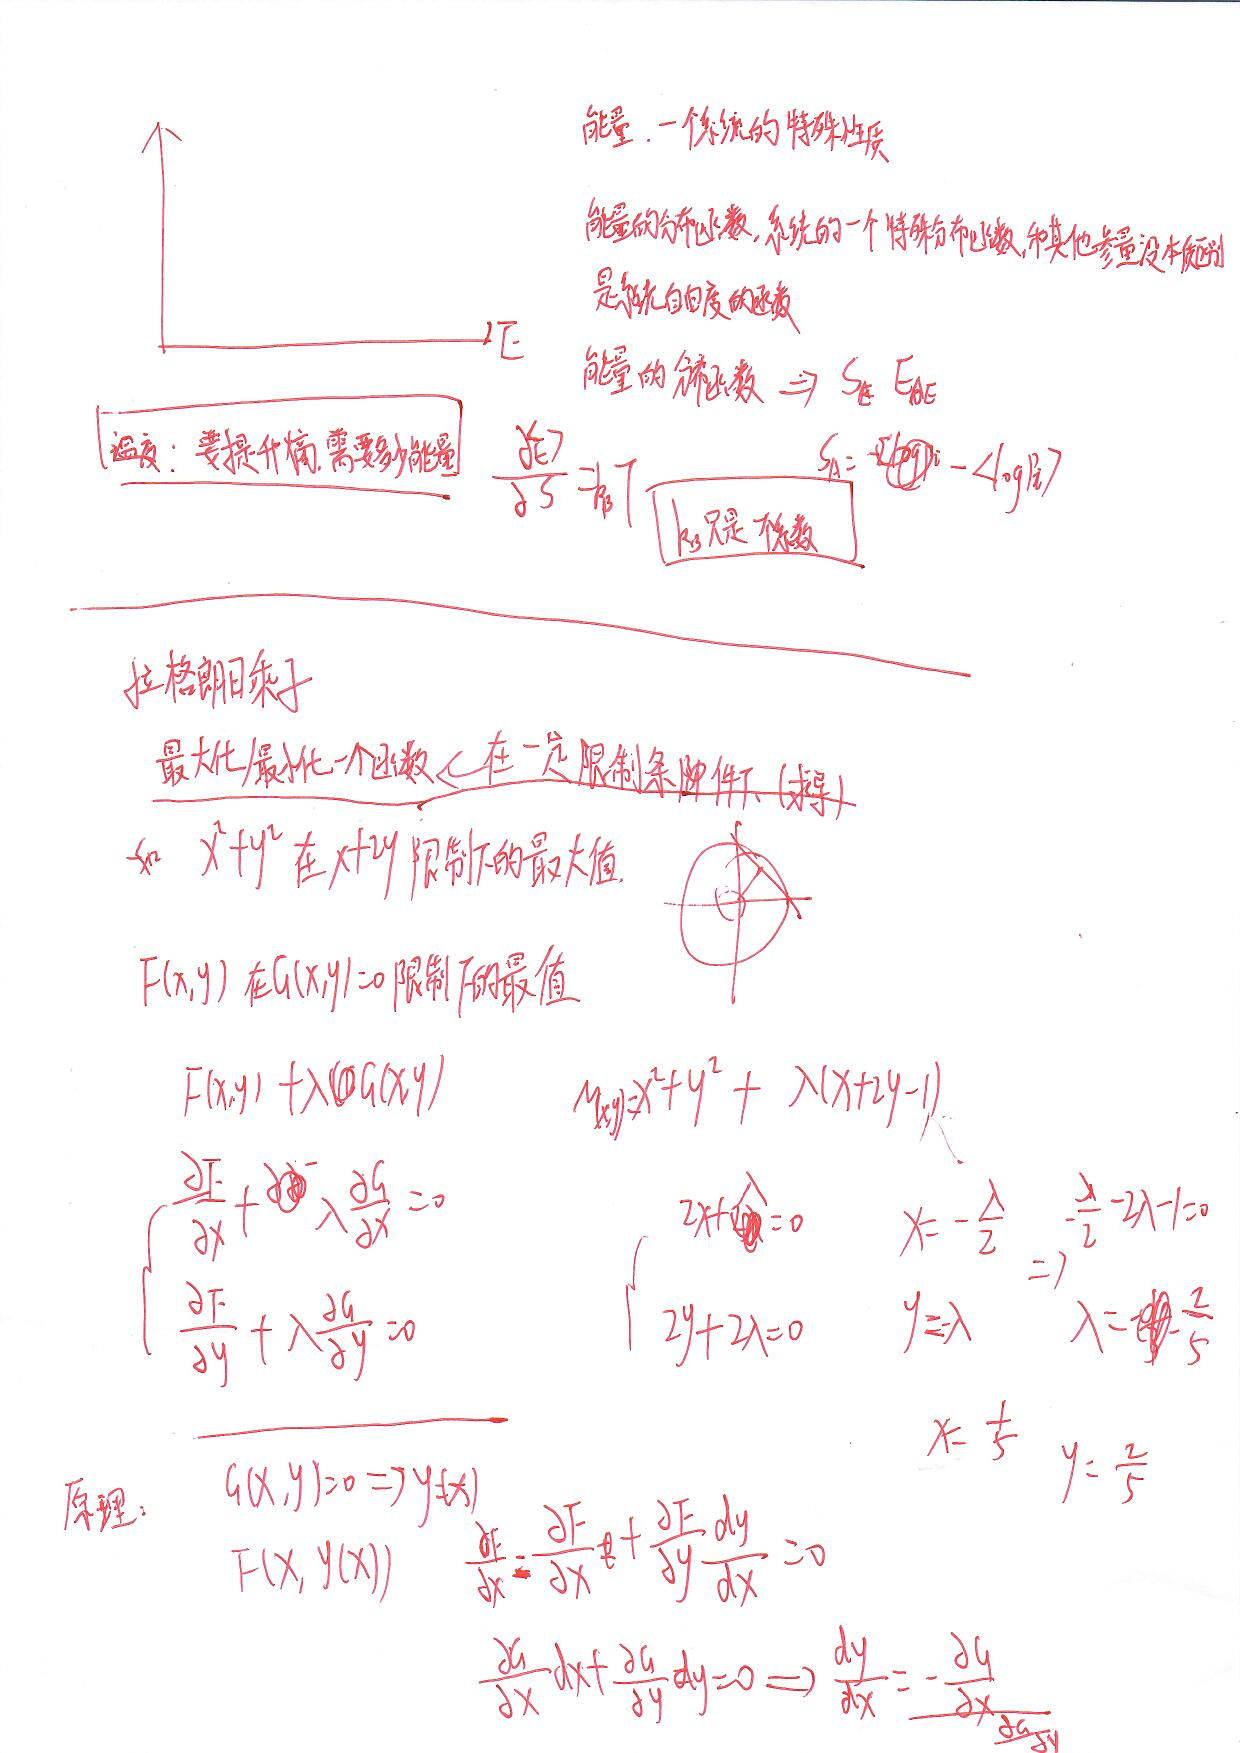 能量.一个系统的特殊性质
能量的分布函数,系统的一个特殊分布函数,和其他参量没本质区别
是系统自由度的函数
E
能量的分布函数 ⇒ S
温度:要提升熵,需要多少能量
∂⟨E⟩/∂S = k_B T
S_A = - <log P_i>
k_B只是一个系数
拉格朗日乘子
最大化/最小化一个函数 ← 在一定限制条件下(求导)
如 x²+y² 在 x+2y 限制下的最大值.
F(x,y) 在G(x,y)=0 限制下的最值
F(x,y) + λG(x,y)
M(x,y)=x²+y² + λ(x+2y-1)
∂F/∂x + λ ∂G/∂x = 0
2x+λ=0
x = -λ/2
⇒ -λ/2 -2λ-1=0
∂F/∂y + λ ∂G/∂y = 0
2y+2λ=0
y=-λ
λ=-2/5
x= 1/5
y= 2/5
原理:
G(x,y)=0 ⇒ y=(x)
F(x, y(x))
∂F/∂x = ∂F/∂x + ∂F/∂y dy/dx = 0
∂G/∂x dx + ∂G/∂y dy = 0 ⇒ dy/dx = - ∂G/∂x / ∂G/∂y